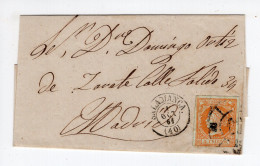 Sr. Dn. Domingo Ortiz
de Zarate Calle Salud 34
Madrid
SALAMANCA
OCT
(40)